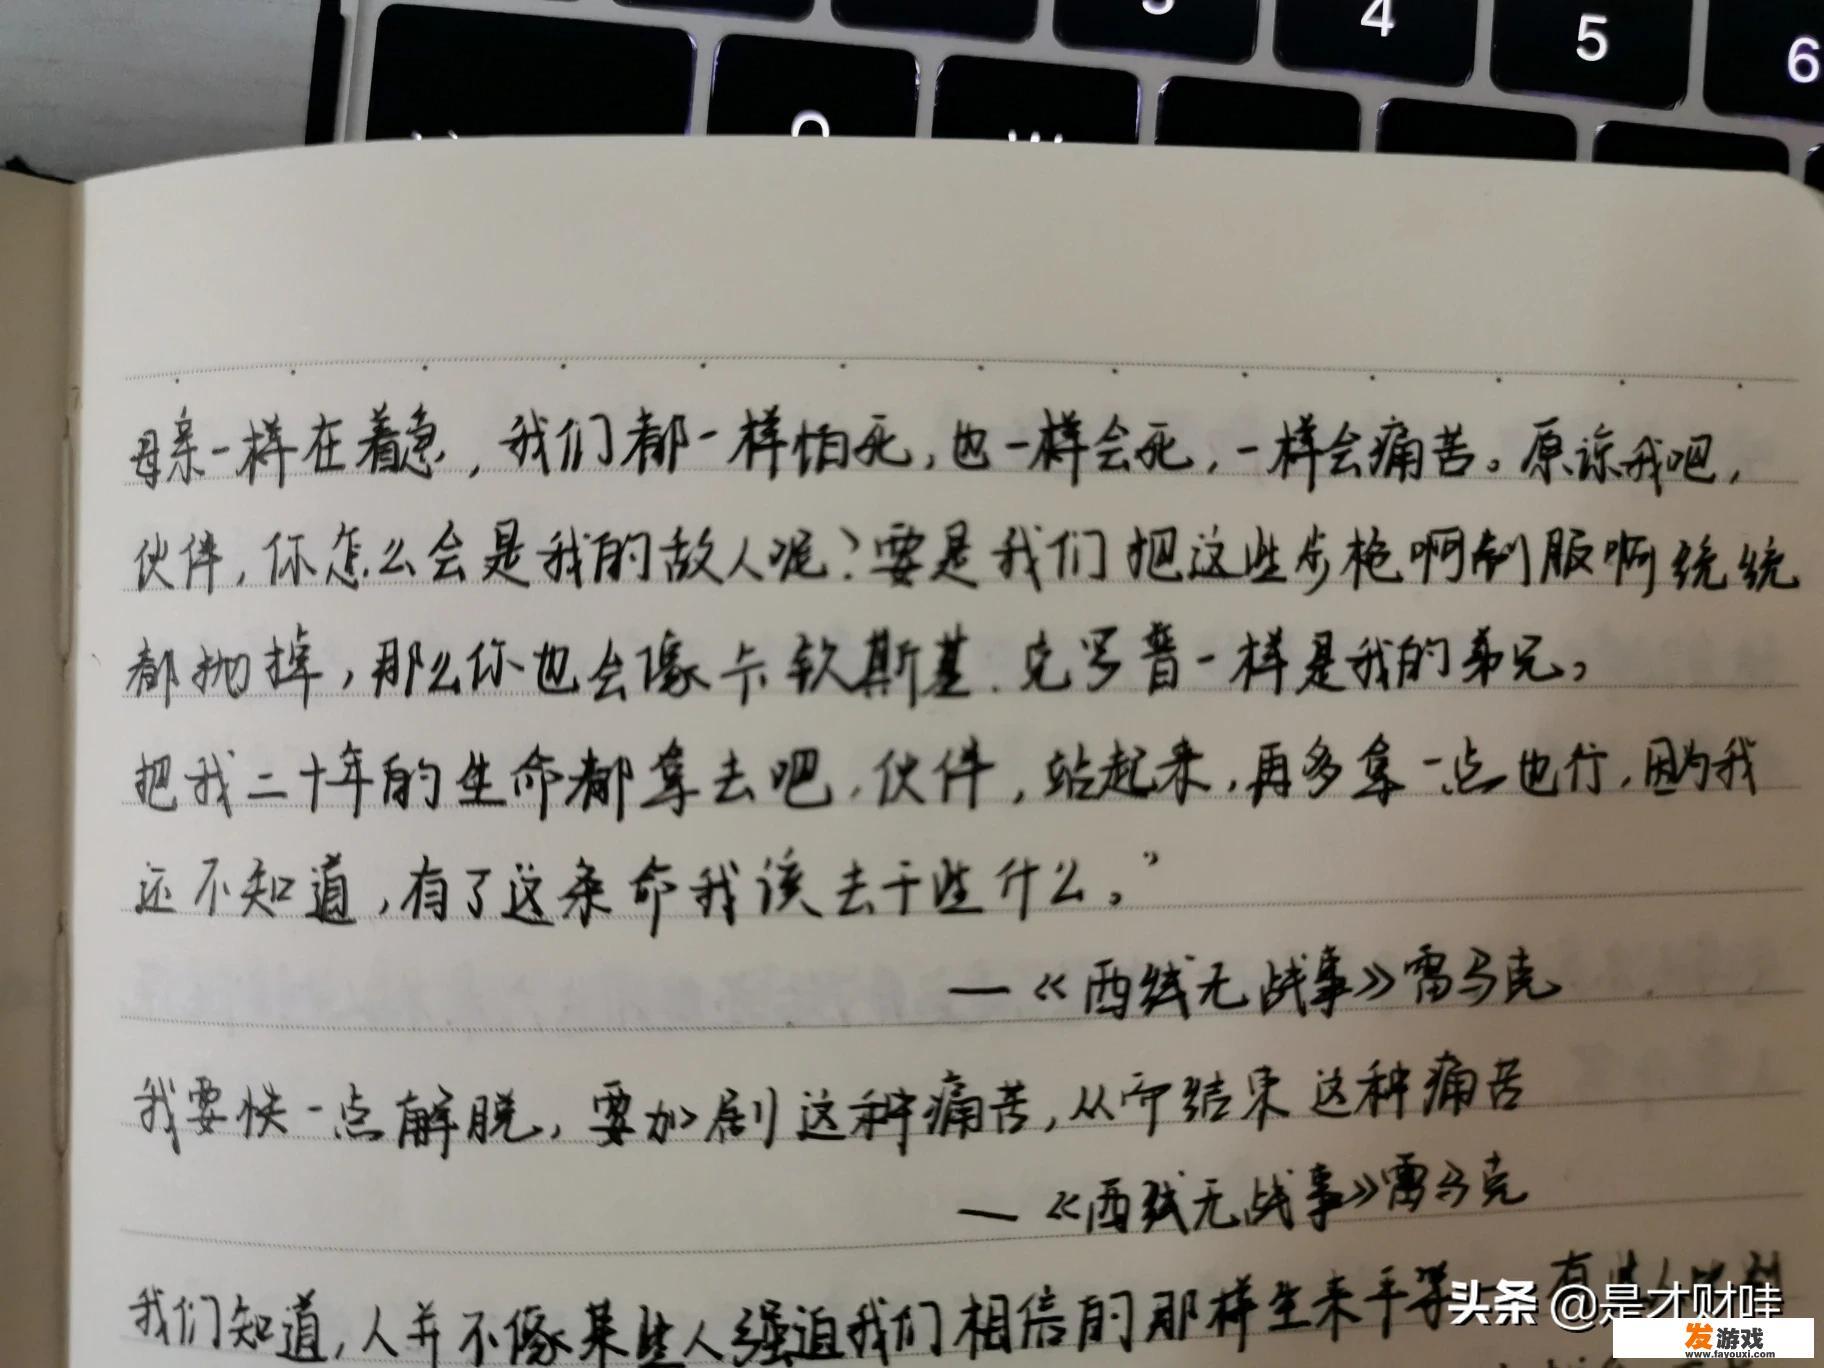 3 4 5 6
Q W
母亲一样在着急，我们都一样怕死，也一样会死，一样会痛苦。原谅我吧，
伙伴，你怎么会是我的敌人呢？要是我们把这些步枪啊制服啊统统
都抛掉，那么你也会像卡钦斯基、克罗普一样是我的弟兄。
把我二十年的生命都拿去吧，伙伴，站起来，再多拿一点也行，因为我
还不知道，有了这条命我该去干些什么。”
—《西线无战事》雷马克
我要快一点解脱，要加剧这种痛苦，从而结束这种痛苦
—《西线无战事》雷马克
我们知道，人并不像某些人强迫我们相信的那样生来平等
头条 @是才财哇
发游戏
www.fayouxi.com